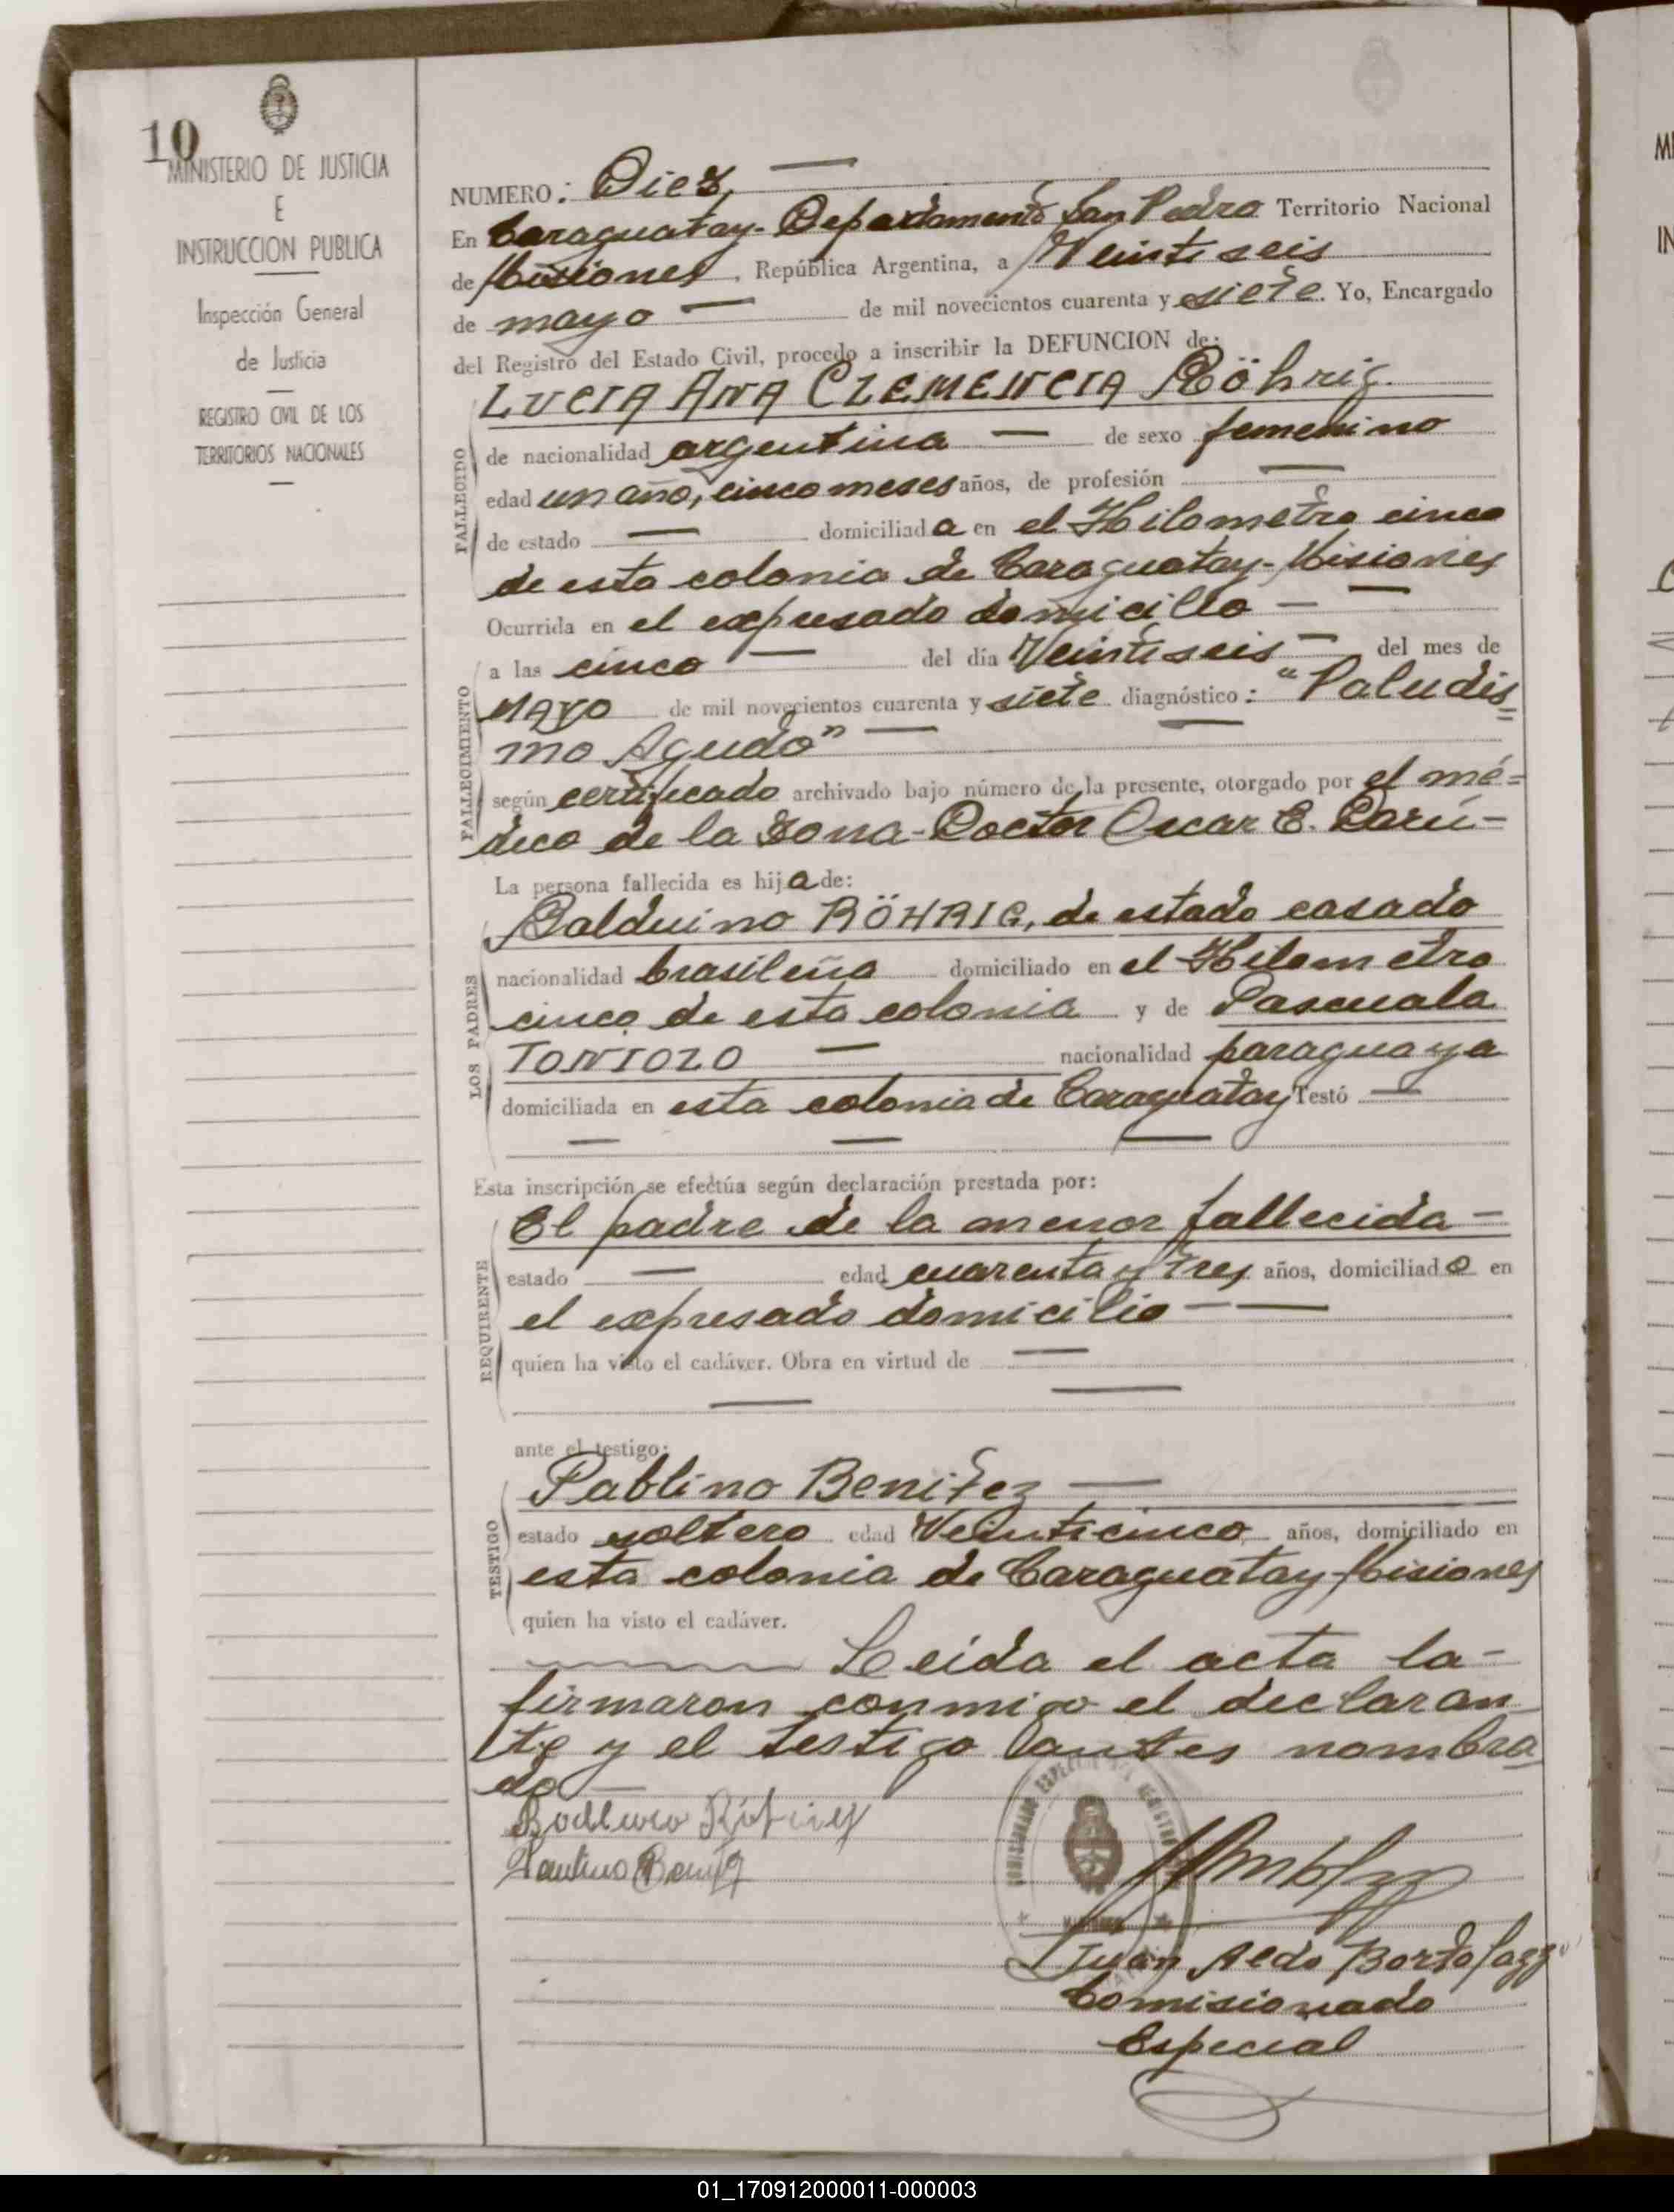 10
MINISTERIO DE JUSTICIA
E
INSTRUCCION PUBLICA
Inspección General
de Justicia
REGISTRO CIVIL DE LOS
TERRITORIOS NACIONALES
NUMERO: Diez,
En Caraguatay-Departamento San Pedro Territorio Nacional
de Misiones, República Argentina, a Veintiseis
de mayo de mil novecientos cuarenta y siete. Yo, Encargado
del Registro del Estado Civil, procedo a inscribir la DEFUNCION de:
LUCIA ANA CLEMENCIA Röhrig.
FALLECIDO
de nacionalidad argentina de sexo femenino
edad un año, cinco meses años, de profesión
de estado domiciliada en el Kilometro cinco
de esta colonia de Caraguatay-Misiones
Ocurrida en el expresado domicilio
FALLECIMIENTO
a las cinco del día Veintiseis del mes de
MAYO de mil novecientos cuarenta y siete diagnóstico: "Paludis=
mo Agudo"
según certificado archivado bajo número de la presente, otorgado por el mé=
dico de la zona-Doctor Oscar E. Darú-
La persona fallecida es hija de:
LOS PADRES
Balduino RÖHRIG, de estado casado
nacionalidad brasileña domiciliado en el Kilometro
cinco de esta colonia y de Pascuala
TONIOLO nacionalidad paraguaya
domiciliada en esta colonia de Caraguatay Testó
Esta inscripción se efectúa según declaración prestada por:
REQUIRENTE
El padre de la menor fallecida-
estado edad cuarenta y tres años, domiciliado en
el expresado domicilio
quien ha visto el cadáver. Obra en virtud de
ante el testigo:
TESTIGO
Pablino Benitez
estado soltero edad Veinticinco años, domiciliado en
esta colonia de Caraguatay-Misiones
quien ha visto el cadáver.
Leida el acta la-
firmaron conmigo el declaran
te y el testigo antes nombra
do
Juan Aldo
Comisionado
Especial
01_170912000011-000003